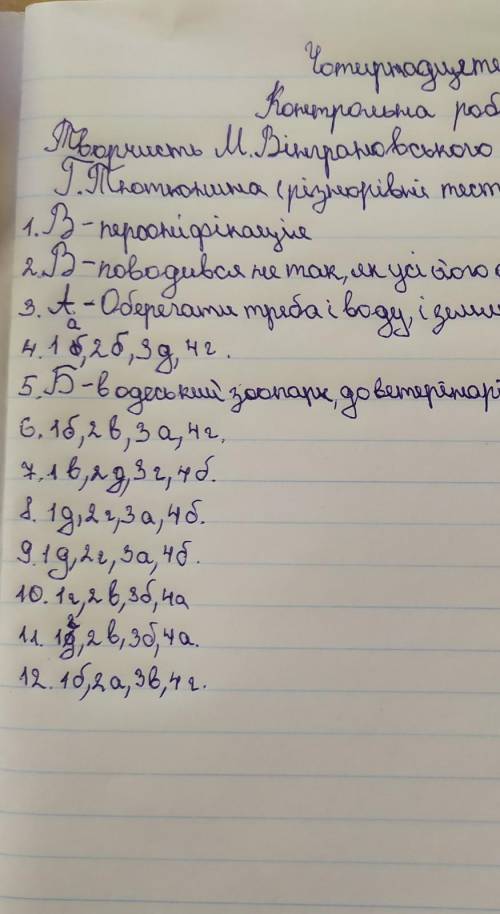 Чотирнадцяте
Контрольна роб
Творчисть М. Вінграновського
Г. Тютюнника (різнорівні тест
1. В - персоніфікація
2. В - поводився не так, як усі його
3. А - Оберегати треба і воду, і земл
а
4. 1б, 2б, 3д, 4г.
5. Б - в одеський зоопарк, до ветеринарі
6. 1б, 2в, 3а, 4г.
7. 1в, 2д, 3г, 4б.
8. 1д, 2г, 3а, 4б.
9. 1д, 2г, 3а, 4б.
10. 1г, 2в, 3б, 4а
11. 1г, 2в, 3б, 4а.
12. 1б, 2а, 3в, 4г.